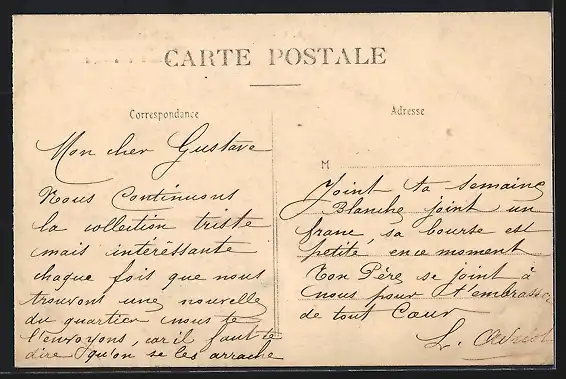 CARTE POSTALE
Correspondance
Adresse
M
Mon cher Gustave
Nous Continuons
la collection triste
mais intéréssante
chaque fois que nous
trouvons une nouvelle
du quartier nous te
l'envoyons, car il faut te
dire qu'on se les arrache
Joint ta semaine
Blanche joint un
franc, sa bourse est
petite en ce moment
Ton Père se joint à
nous pour t'embrasser
de tout Cœur
L.